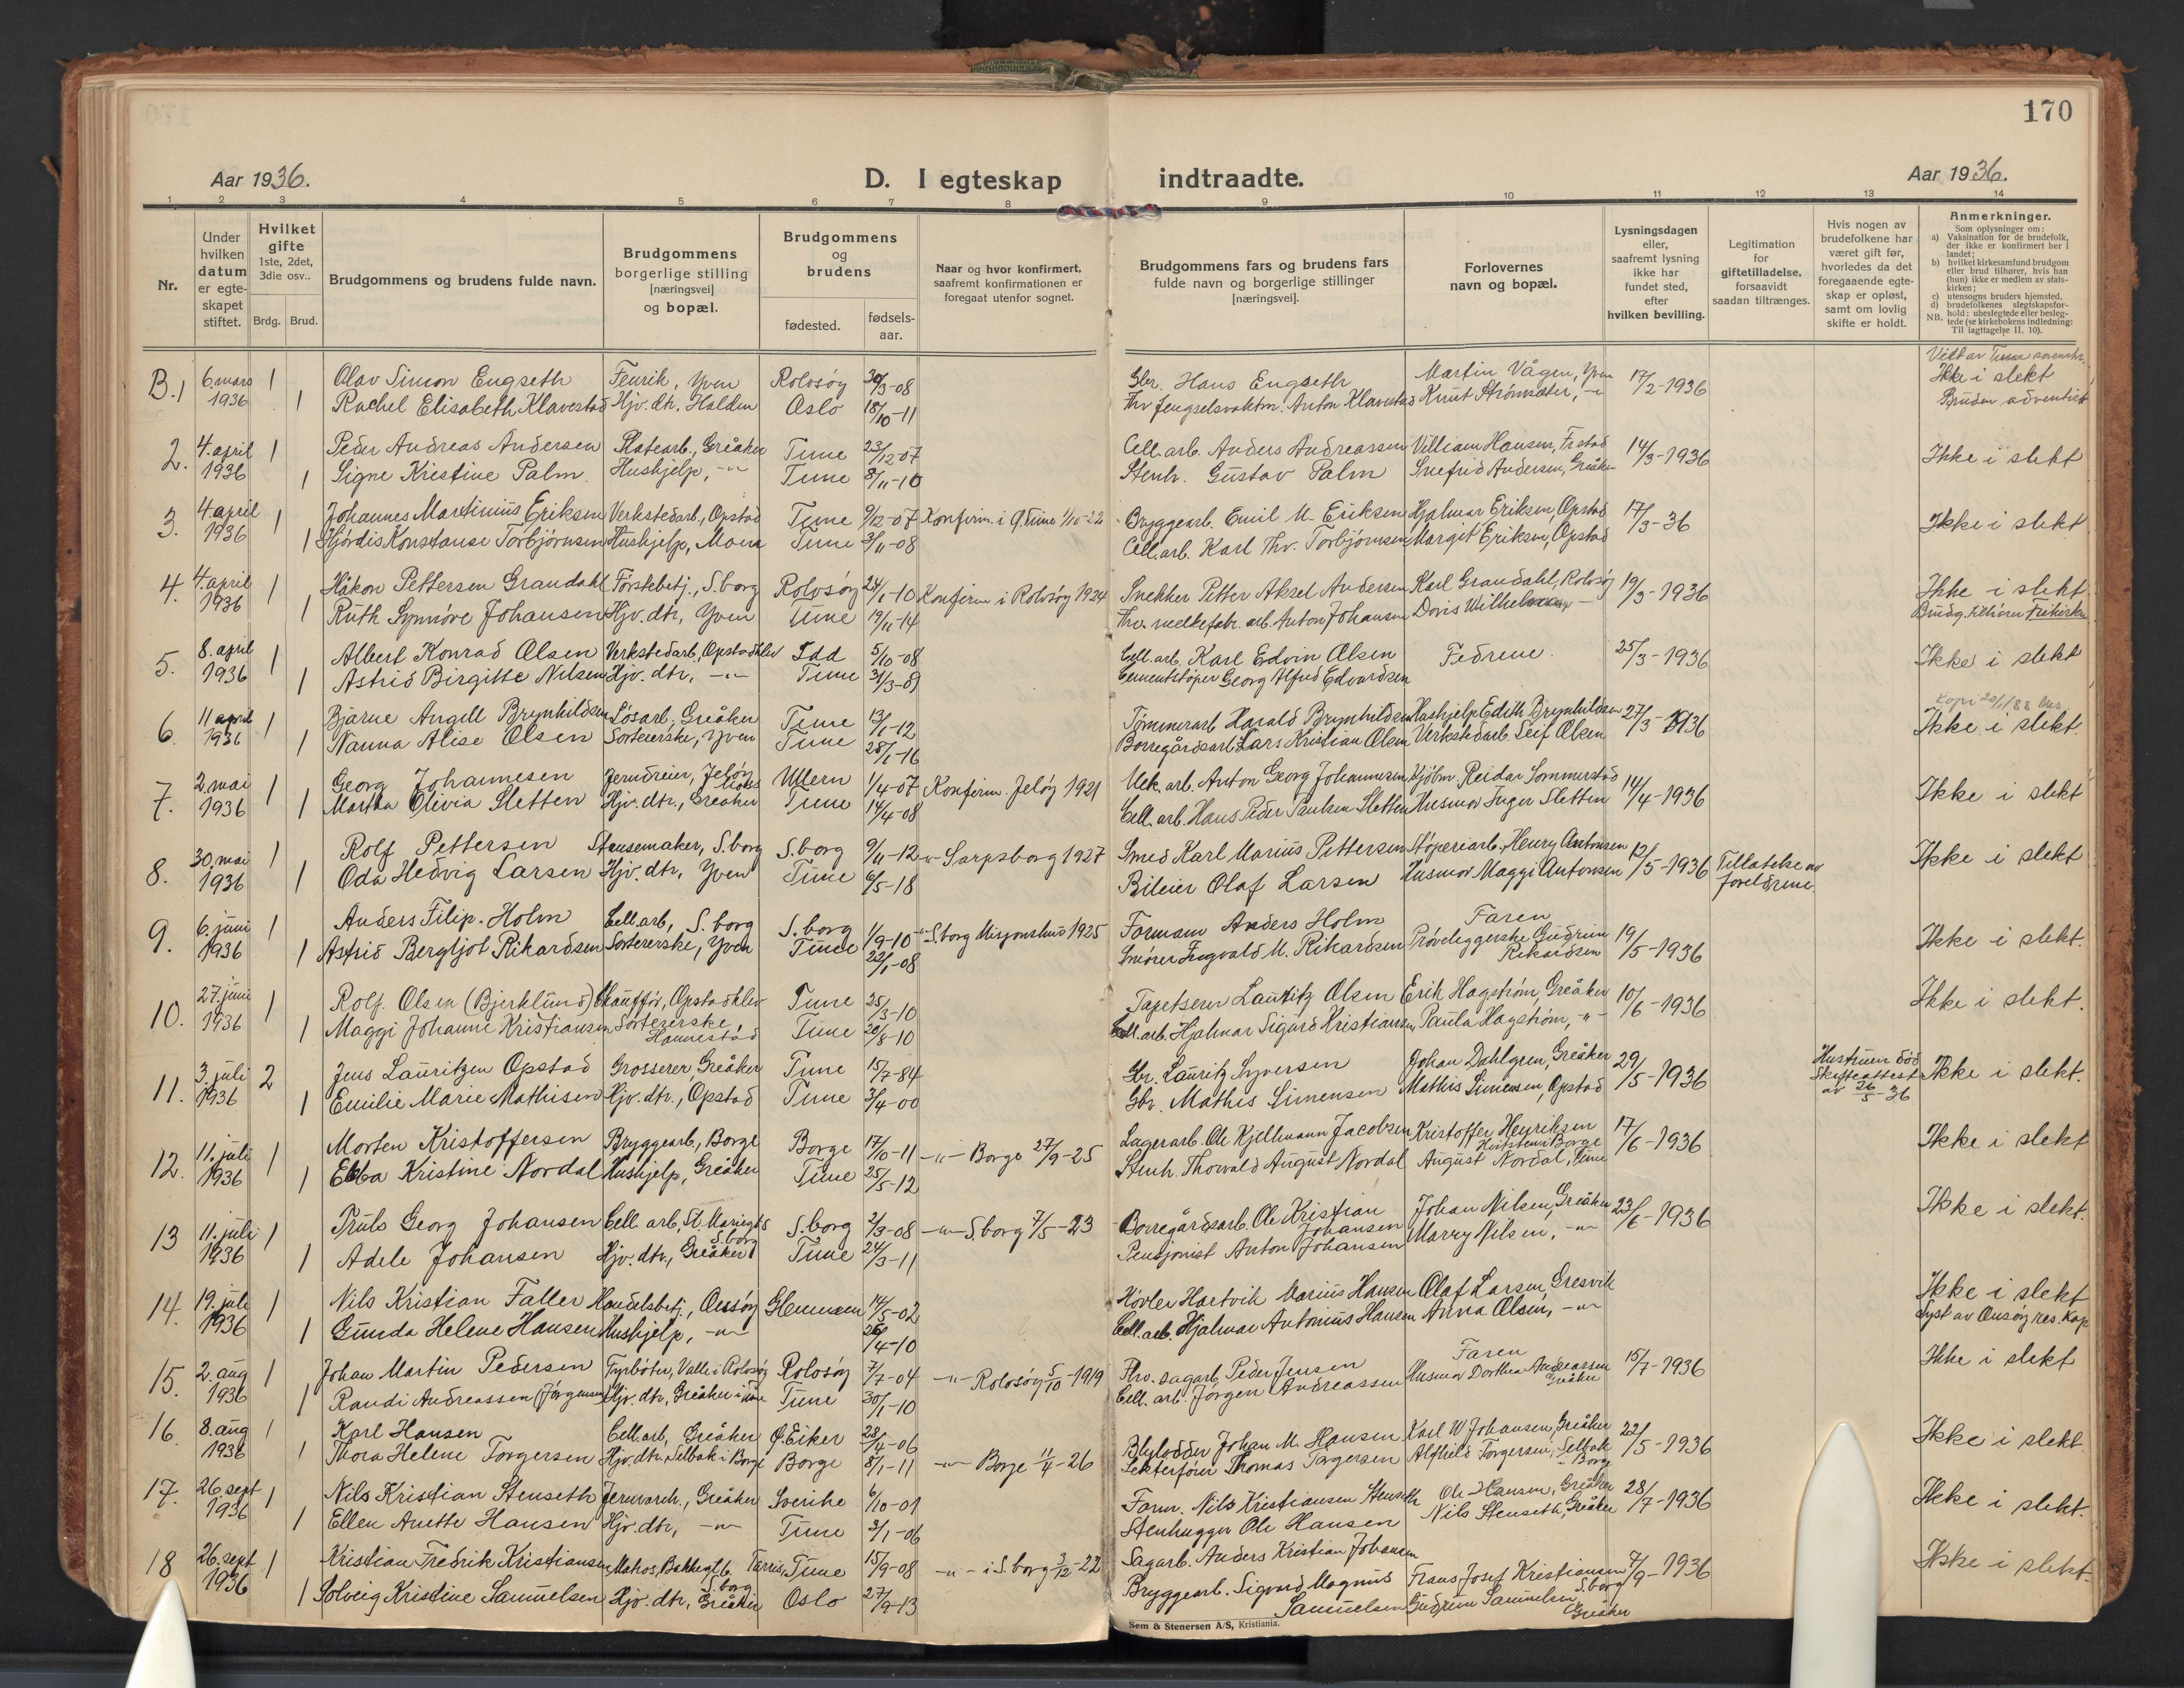 170
Aar 1936.
D. I egteskap indtraadte.
Aar 1936.
1 2 3 4 5 6 7 8 9 10 11 12 13 14
Nr.
Under hvilken datum er egteskapet stiftet.
Hvilket gifte 1ste, 2det, 3die osv..
Brdg. Brud.
Brudgommens og brudens fulde navn.
Brudgommens borgerlige stilling [næringsvei] og bopæl.
Brudgommens og brudens
fødested.
fødsels-aar.
Naar og hvor konfirmert, saafremt konfirmationen er foregaat utenfor sognet.
Brudgommens fars og brudens fars fulde navn og borgerlige stillinger [næringsvei].
Forlovernes navn og bopæl.
Lysningsdagen eller, saafremt lysning ikke har fundet sted, efter hvilken bevilling.
Legitimation for giftetilladelse, forsaavidt saadan tiltrænges.
Hvis nogen av brudefolkene har været gift før, hvorledes da det foregaaende egteskap er opløst, samt om lovlig skifte er holdt.
Anmerkninger.
Som oplysninger om:
a) Vaksination for de brudefolk, der ikke er konfirmert her i landet;
b) hvilket kirkesamfund brudgom eller brud tilhører, hvis han (hun) ikke er medlem av statskirken;
c) utensogns bruders hjemsted.
d) brudefolkenes slegtskapsforhold: ubeslegtede eller beslegtede (se kirkebokens indledning: NB. Til iagttagelse II. 10).
B.1 6.mars 1936 1 Olav Simon Engseth Fenrik, Yven Rolvsøy 30/3-08 Gbr. Hans Engseth Martin Vågen, Yven 17/2-1936 Ikke i slekt
1 Rachel Elisabeth Klavestad Hjv. dtr. Halden Oslo 18/10-11 Fhv fengselsvaktm. Anton Klavestad Knut Strømsæter, -"- Bruden adventist
2. 4.april 1936 1 Peder Andreas Andersen Platearb., Greåker Tune 23/12-07 Cell.arb. Anders Andreassen Villiam Hansen, Fr.stad 14/3-1936 Ikke i slekt
1 Signe Kristine Palm Hushjelp, -"- Tune 8/11-10 Stenh. Gustav Palm Snefrid Andersen, Greåker
3. 4 april 1936 1 Johannes Martinius Eriksen Verkstedarb., Opstad Tune 9/12-07 Konfirm. i Ø.Tune 1/10-22 Bryggearb. Emil M. Eriksen Hjalmar Eriksen, Opstad 17/3-36 Ikke i slekt
1 Hjørdis Konstanse Torbjørnsen Hushjelp, Moen Tune 3/11-08 Cell.arb. Karl Thv. Torbjørnsen Margit Eriksen, Opstad
4. 4.april 1936 1 Håkon Pettersen Grandahl Førstebetj., S.borg Rolvsøy 24/1-10 Konfirm i Rolvsøy 1924 Snekker Petter Aksel Andersen Karl Grandahl, Rolvsøy 19/3-1936 Ikke i slekt.
1 Ruth Synnøve Johansen Hjv. dtr, Yven Tune 19/11-14 Fhv. melkefabr. arb. Anton Johansen Doris Wilhelmsen - Brudg. tilhører Frikirken
5. 8. april 1936 1 Albert Konrad Olsen Verkstedarb, Opstadhlev Idd 5/10-08 Cell.arb. Karl Edvin Olsen Fedrene. 25/3-1936 Ikke i slekt
1 Astrid Birgitte Nilsen Hjv. dtr, -"- Tune 31/3-09 Cementstøper Georg Alfred Edvardsen
6. 11 april 1936 1 Bjarne Angell Brynhildsen Løsarb, Greåker Tune 13/1-12 Tømmerarb Harald Brynhildsen Hushjelp Edith Brynhildsen 27/3-1936 Ikke i slekt.
1 Nanna Alise Olsen Sortererske, Yven Tune 28/1-16 Borregårdsarb Lars Kristian Olsen Verkstedarb. Leif Olsen
7. 2.mai 1936 1 Georg Johannesen Jerndreier, Jeløy Moss Ullern 1/4-07 Konfirm. Jeløy 1921 Mek. arb. Anton Georg Johannesen Kjølm. Reidar Sommerstad 14/4-1936 Ikke i slekt
1 Martha Olivia Sletten Hjv. dtr., Greåker Tune 14/4-08 Cell. arb. Hans Peder Paulsen Sletten Husmor Inger Sletten
8. 30.mai 1936 1 Rolf Pettersen Stansemaker, S.borg S.borg 9/11-12 -"- Sarpsborg 1927 Smed Karl Marius Pettersen Støperiarb. Henry Antonsen 12/5-1936 Tillatelse av foreldrene. Ikke i slekt
1 Oda Hedvig Larsen Hjv. dtr, Yven Tune 6/5-18 Bileier Olaf Larsen Husmor Maggi Antonsen
9. 6. juni 1936 1 Anders Filip. Holm Cell.arb, S. borg S. borg 1/9-10 -"- S.borg Misjonshus 1925 Formann Anders Holm Faren 19/5-1936 Ikke i slekt.
1 Astrid Bergljot Rikardsen Sortererske, Yven Tune 22/1-08 Smører Ingvald M. Rikardsen Prøveleggerske Gudrun Rikardsen
10. 27. juni 1936 1 Rolf. Olsen (Bjerklund) Chauffør, Opstadhlev Tune 25/3-10 Tapetserer Lauritz Olsen Erik Hagstrøm, Greåker 10/6-1936 Ikke i slekt.
1 Maggi Johanne Kristiansen Sortererske, Hannestad Tune 20/8-10 Cell.arb. Hjalmar Sigurd Kristiansen Paula Hagstrøm, -"-
11. 3. juli 1936 2 Jens Lauritzen Opstad Grosserer Greåker Tune 15/7-84 Gbr. Lauritz Syversen Johan Dahlgren, Greåker 29/5-1936 Hustruen død Skifteattest av 26/5-36 Ikke i slekt.
1 Emilie Marie Mathisen Hjv. dtr., Opstad Tune 3/4-00 Gbr. Mathis Simensen Mathis Simensen, Opstad
12. 11. juli 1936 1 Morten Kristoffersen Bryggearb., Borge Borge 17/10-11 -"- Borge 27/9-25 Lagerarb. Ole Kjellmann Jacobsen Kristoffer Henriksen Hvitsten i Borge 17/6-1936 Ikke i slekt
1 Ebba Kristine Nordal Hushjelp, Greåker Tune 25/5-12 Stenh. Thorvald August Nordal August Nordal, Tune
13 11. juli 1936 1 Truls Georg Johansen Cell. arb, St. Mariegt 8 S.borg S.borg 2/3-08 -"- S.borg 7/5-23 Borregårdsarb. Ole Kristian Johansen Johan Nilsen, Greåker 23/6-1936 Ikke i slekt.
1 Adele Johansen Hjv. dtr, Greåker Tune 24/3-11 Pensjonist Anton Johansen Marry Nilsen, -"-
14. 19. juli 1936 1 Nils Kristian Faller Handelsbetj, Onsøy Glemmen 14/5-02 Høvler Hartvik Marius Hansen Olaf Larsen, Gresvik Ikke i slekt
1 Gunda Helene Hansen Hushjelp, -"- 26/4-10 Cell.arb. Hjalmar Antonius Hansen Anna Olsen, -"- Lyst av Onsøy res. kap
15. 2. aug 1936 1 Johan Martin Pedersen Fyrbøter, Valle i Rolvsøy Rolvsøy 7/7-04 -"- Rolvsøy 5/10-1919 Fhv. sagarb. Peder Jensen Faren 15/7-1936 Ikke i slekt
1 Randi Andreassen (Jørgensen) Hjv. dtr, Greåker i Tune Tune 30/1-10 Cell. arb. Jørgen Andreassen Husmor Dorthea Andreassen Greåker
16. 8. aug 1936 1 Karl Hansen Cell.arb, Greåker Ø.Eiker 28/4-06 Blylodder Johan M. Hansen Karl W Johansen, Greåker 22/5-1936 Ikke i slekt.
1 Thora Helene Torgersen Hjv. dtr. Selbak i Borge Borge 8/1-11 -"- Borge 11/4-26 Lekterfører Thomas Torgersen Alfhild Torgersen, Selbak i Borge
17. 26. sept 1936 1 Nils Kristian Stenseth Jernvareh., Greåker Sverike 6/10-01 Farm. Nils Kristiansen Stenseth Ole Hansen, Greåker 28/7-1936 Ikke i slekt.
1 Ellen Anette Hansen Hjv. dtr, -"- Tune 3/1-06 Stenhugger Ole Hansen Nils Stenseth, Greåker
18 26. sept 1936 1 Kristian Fredrik Kristiansen Tune 15/9-08 -"- i S.borg 3/12-22 Sagarb. Anders Kristian Johansen Frans Josef Kristiansen S.borg 7/9-1936 Ikke i slekt.
1 Solveig Kristine Samuelsen Hjv. dtr, Greåker Oslo 27/9-13 Bryggearb. Sigvard Magnus Samuelsen Gudrun Samuelsen Greåker
Sem & Stenersen A/S, Kristiania.